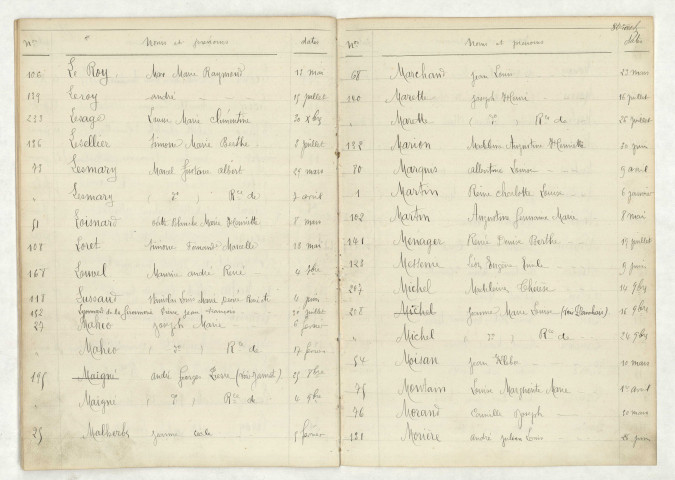 Nos Noms et prénoms dates
106 Le Roy, Max Marie Raymond 17 mai
139 Leroy andré 15 juillet
223 Lesage Laure Marie Clémentine 20 Xbre
126 Lesellier Simone Marie Berthe 2 juillet
73 Lesmary Marcel Gustave albert 29 mars
" Lesmary ( do ) Rte de 7 avril
51 Loisnard Blanche Marie Henriette 8 mars
108 Loret Simone Fernande Marcelle 18 mai
168 Louvel Maurice andré René 4 7bre
118 Lussaud Louis Marie René 4 juin
152 Lyonnais de la jean francois 21 juillet
27 Maheo Joseph Marie 6 février
" Maheo ( do ) Rte de 17 février
195 Maigné andré Georges Pierre (Voir Jamet) 25 8bre
" Maigné ( do ) Rte de 4 9bre
25 Malherbe Jeanne février
Nos Noms et prénoms Dates
68 Marchand Jean Louis 23 mars
140 Marette Joseph Henri 16 juillet
" Marette ( do ) Rte de 26 juillet
132 Marion Madeleine Augustine Henriette 20 juin
80 Marquis albertine Louise 9 avril
1 Martin Reine charlotte Louise 6 janvier
102 Martin Augustine Germaine Marie 8 mai
141 Menager René Denise Berthe 19 juillet
123 Léon Eugène Emile 9 juin
207 Michel Madeleine Thérèse 14 9bre
208 Michel Jeanne Marie Louise (Voir Danchais) 16 9bre
" Michel ( do ) Rte de 24 9bre
54 Moisan Jean 10 mars
75 Montain Louise Marguerite Marie 1er avril
76 Morand Camille Joseph 10 mars
121 Morière André Julien Louis juin